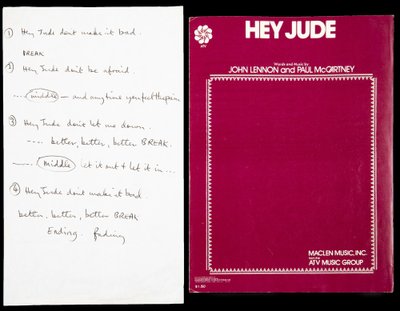 ① Hey Jude dont make it bad.
BREAK
② Hey Jude don't be afraid.
.... middle — and anytime you feel the pain
③ Hey Jude don't let me down.
---- better, better, better BREAK.
.... middle let it out & let it in...
④ Hey Jude dont make it bad
better, better, better BREAK
Ending. fading
ATV
HEY JUDE
Words and Music by
JOHN LENNON and PAUL McCARTNEY
MACLEN MUSIC, INC.
ATV MUSIC GROUP
$1.50